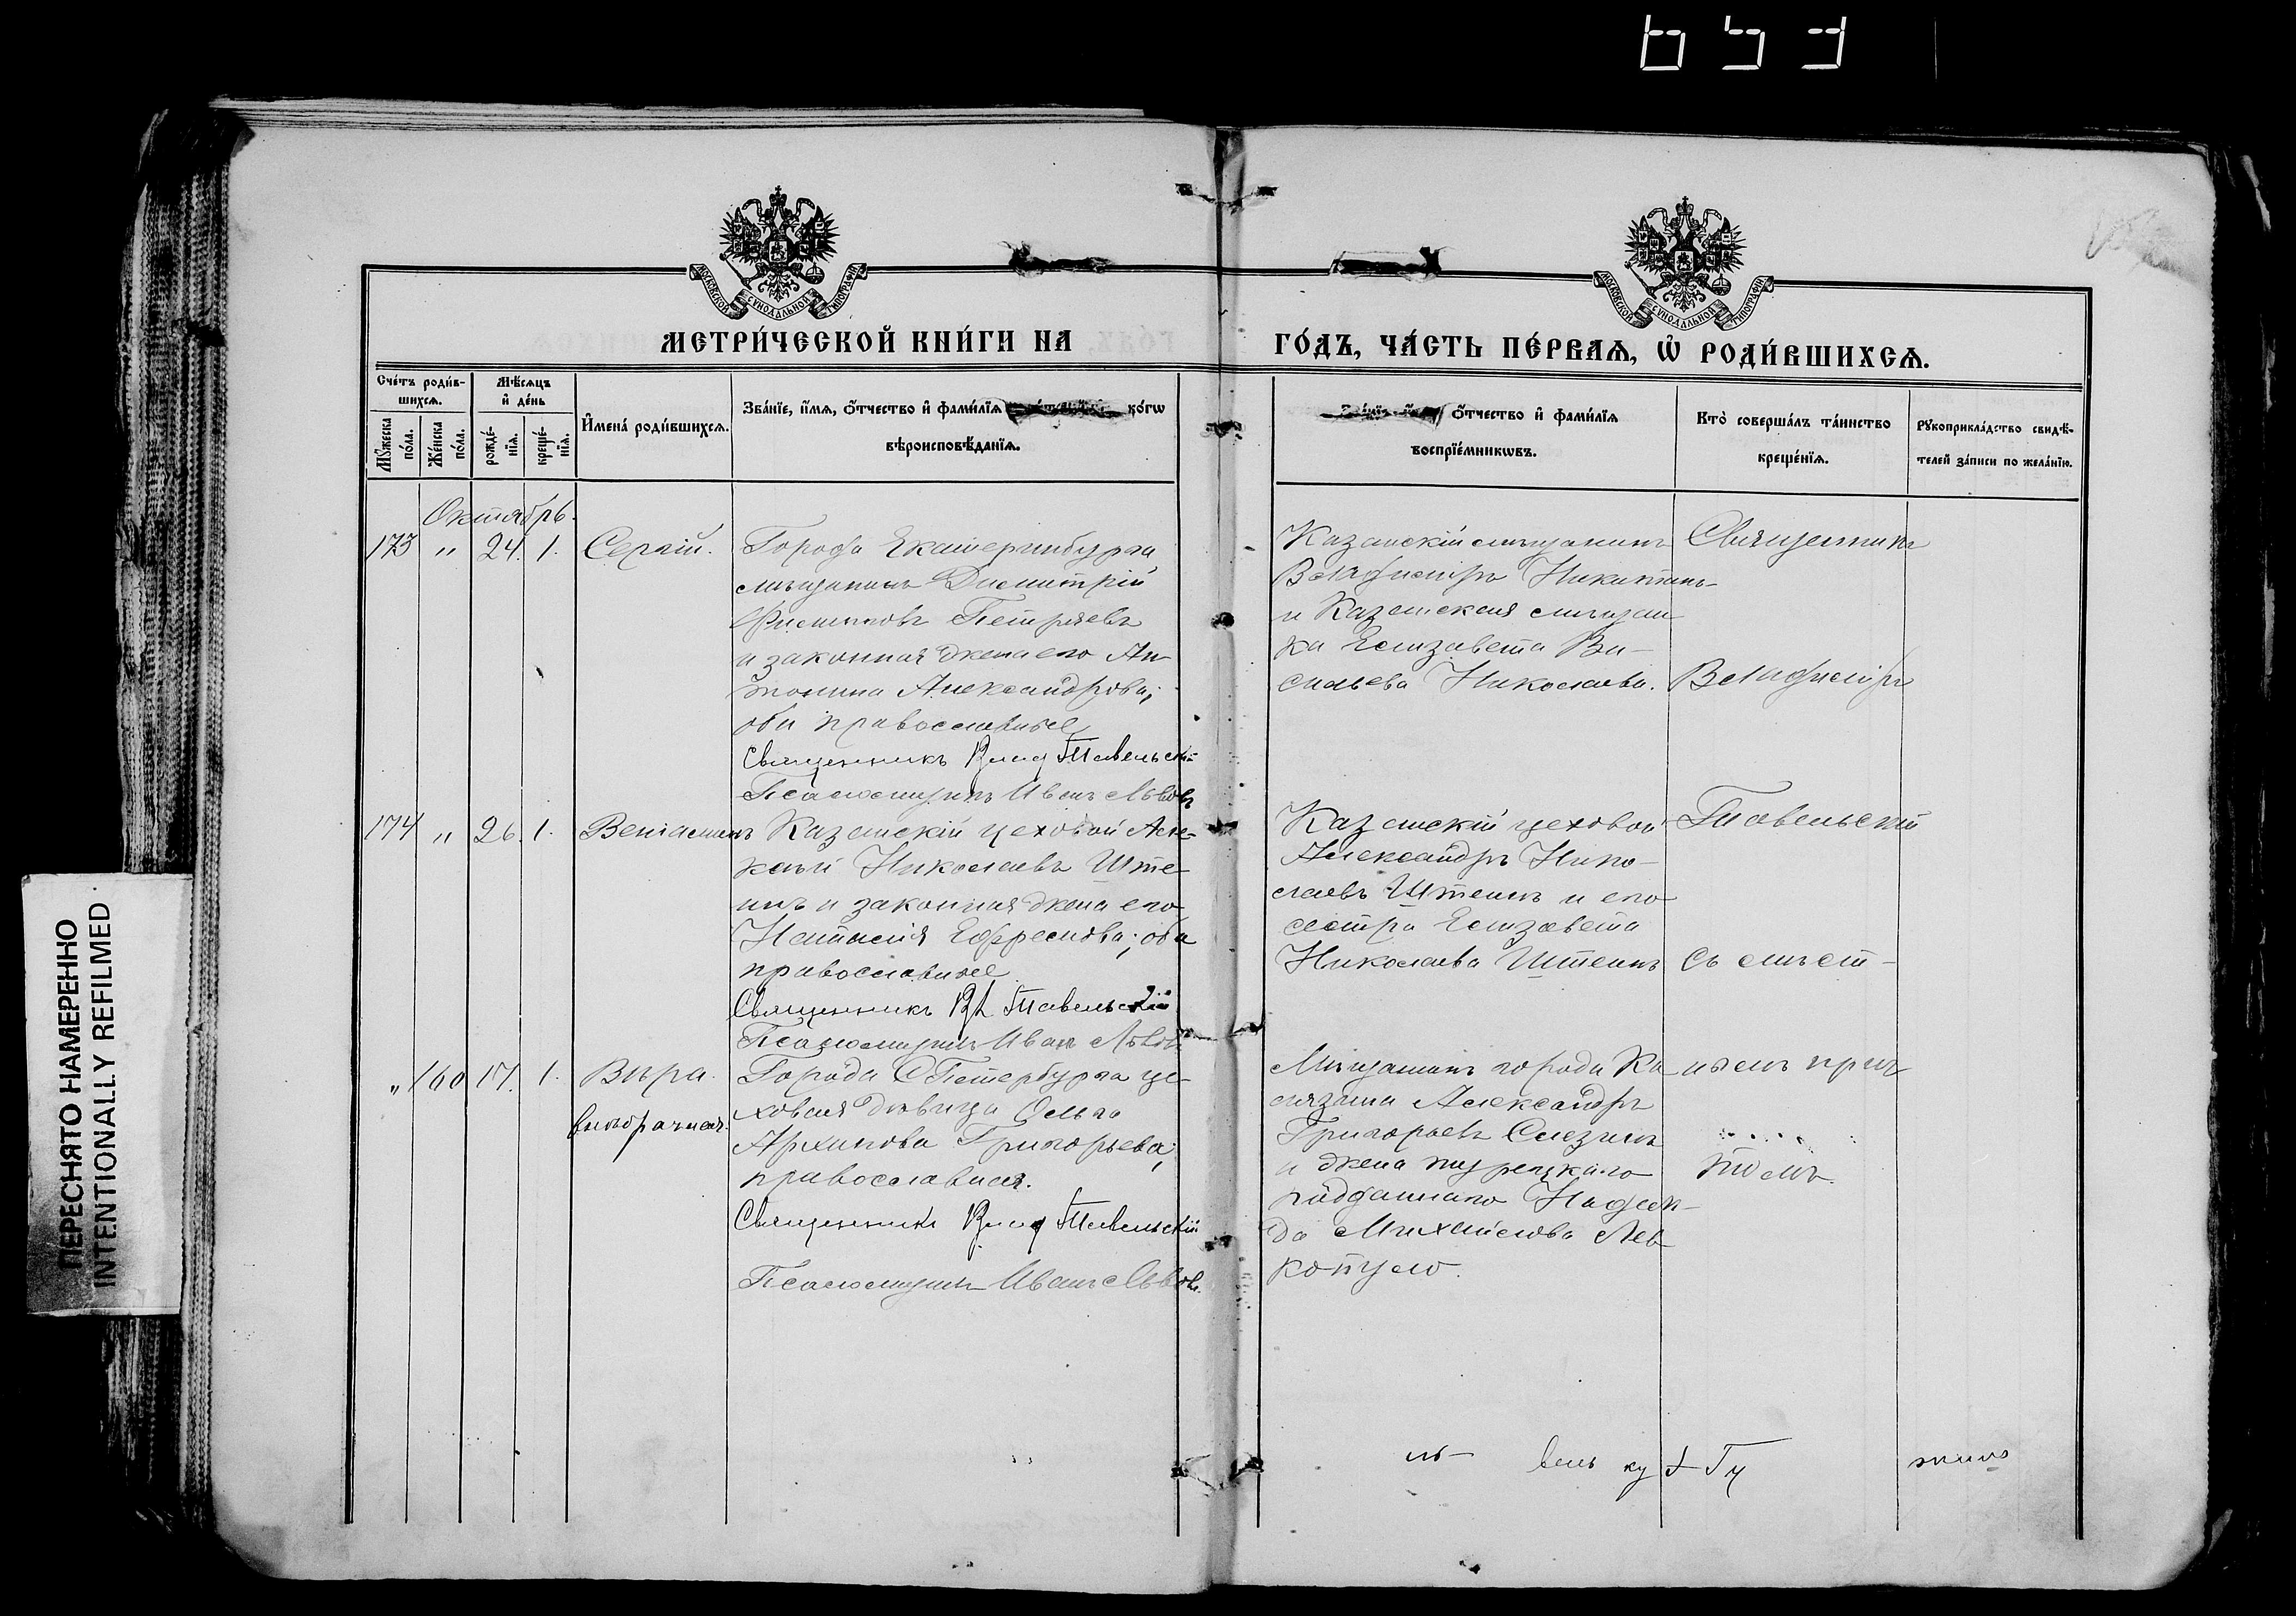 653
МЕТРИ́ЧЕСКОЙ КНИ́ГИ НА
ГО́ДЪ, ЧА́СТЬ ПЕ́РВАЯ, Ѡ҆ РОДИ́ВШИХСЯ.
МОСКОВСКОЙ СѴНОДАЛЬНОЙ ТИПОГРАФІИ
МОСКОВСКОЙ СѴНОДАЛЬНОЙ ТИПОГРАФІИ
Сче́тъ роди́в-
шихся.
Мꙋ́жеска по́ла.
Же́нска по́ла.
Мѣ́сяцъ и҆ де́нь
рожде́-
нїя.
креще́-
нїя.
И҆мена̀ роди́вшихся.
Зва́нїе, и҆́мя, ѻ҆́тчество и҆ фами́лїя кого̀
вѣроисповѣ́данїя.
ѻ҆́тчество и҆ фами́лїя
воспрїе́мникѡвъ.
Кто̀ соверша́лъ та́инство
креще́нїя.
Рꙋкоприкла́дство свидѣ́-
телей за́писи по жела́нїю.
Октябрь.
173 " 24. 1. Сергій.
Города Екатеринбурга
мѣщанинъ Димитрій
Филиповъ Петряевъ
и законная жена его Ан-
тонина Александрова;
оба православные
Священникъ Влад Тавельскій
Псаломщикъ Иванъ Львовъ
Казанскій мѣщанинъ
Владиміръ Никитинъ
и Казанская мѣщан-
ка Елизавета Ва-
сильева Николаева.
174 " 26. 1. Веніаминъ
Казанскій цеховой Але-
ксѣй Николаевъ Ште-
инъ и законная жена его
Наталія Ефремова; оба
православные
Священникъ Вл Тавельскій
Псаломщикъ Иванъ Львовъ
Казанскій цеховой
Александръ Нико-
лаевъ Штеинъ и его
сестра Елизавета
Николаева Штеинъ
" 160 17. 1. Вѣра.
внѣбрачная.
Города С Петербурга це-
ховая дѣвица Ольга
Архипова Григорьева;
православная.
Священникъ Влад Тавельскій
Псаломщикъ Иванъ Львовъ.
Мѣщанинъ города Ка-
лязина Александръ
Григорьевъ
и жена турецкаго
подданнаго Надеж-
да Михайлова Лев-
Священникъ
Владиміръ
Тавельскій
съ мѣст-
нымъ прич-
томъ.
ПЕРЕСНЯТО НАМЕРЕННО
INTENTIONALLY REFILMED